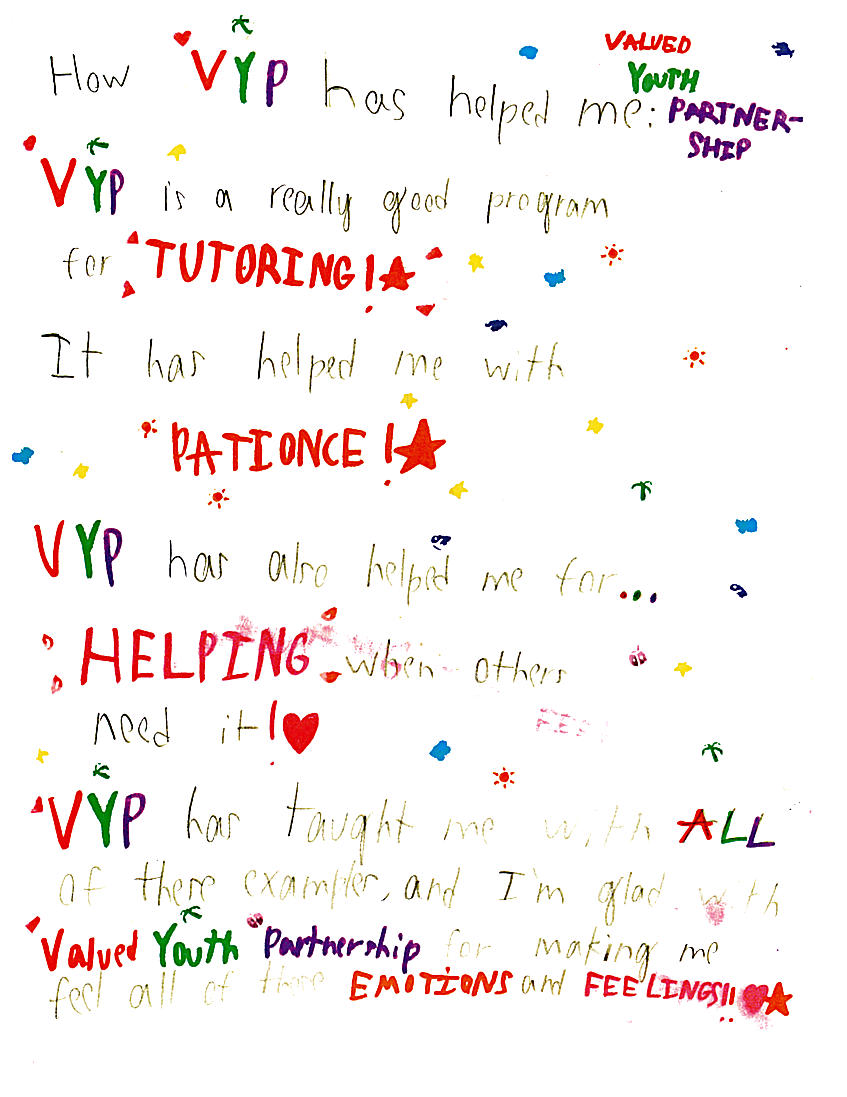 How VYP has helped me:
VALUED
YOUTH
PARTNER-
SHIP
VYP is a really good program
for TUTORING!
It has helped me with
PATIONCE!
VYP has also helped me for...
HELPING when others
need it!
VYP has taught me with ALL
of these examples, and I'm glad with
Valued Youth Partnership for making me
feel all of these EMOTIONS and FEELINGS!!